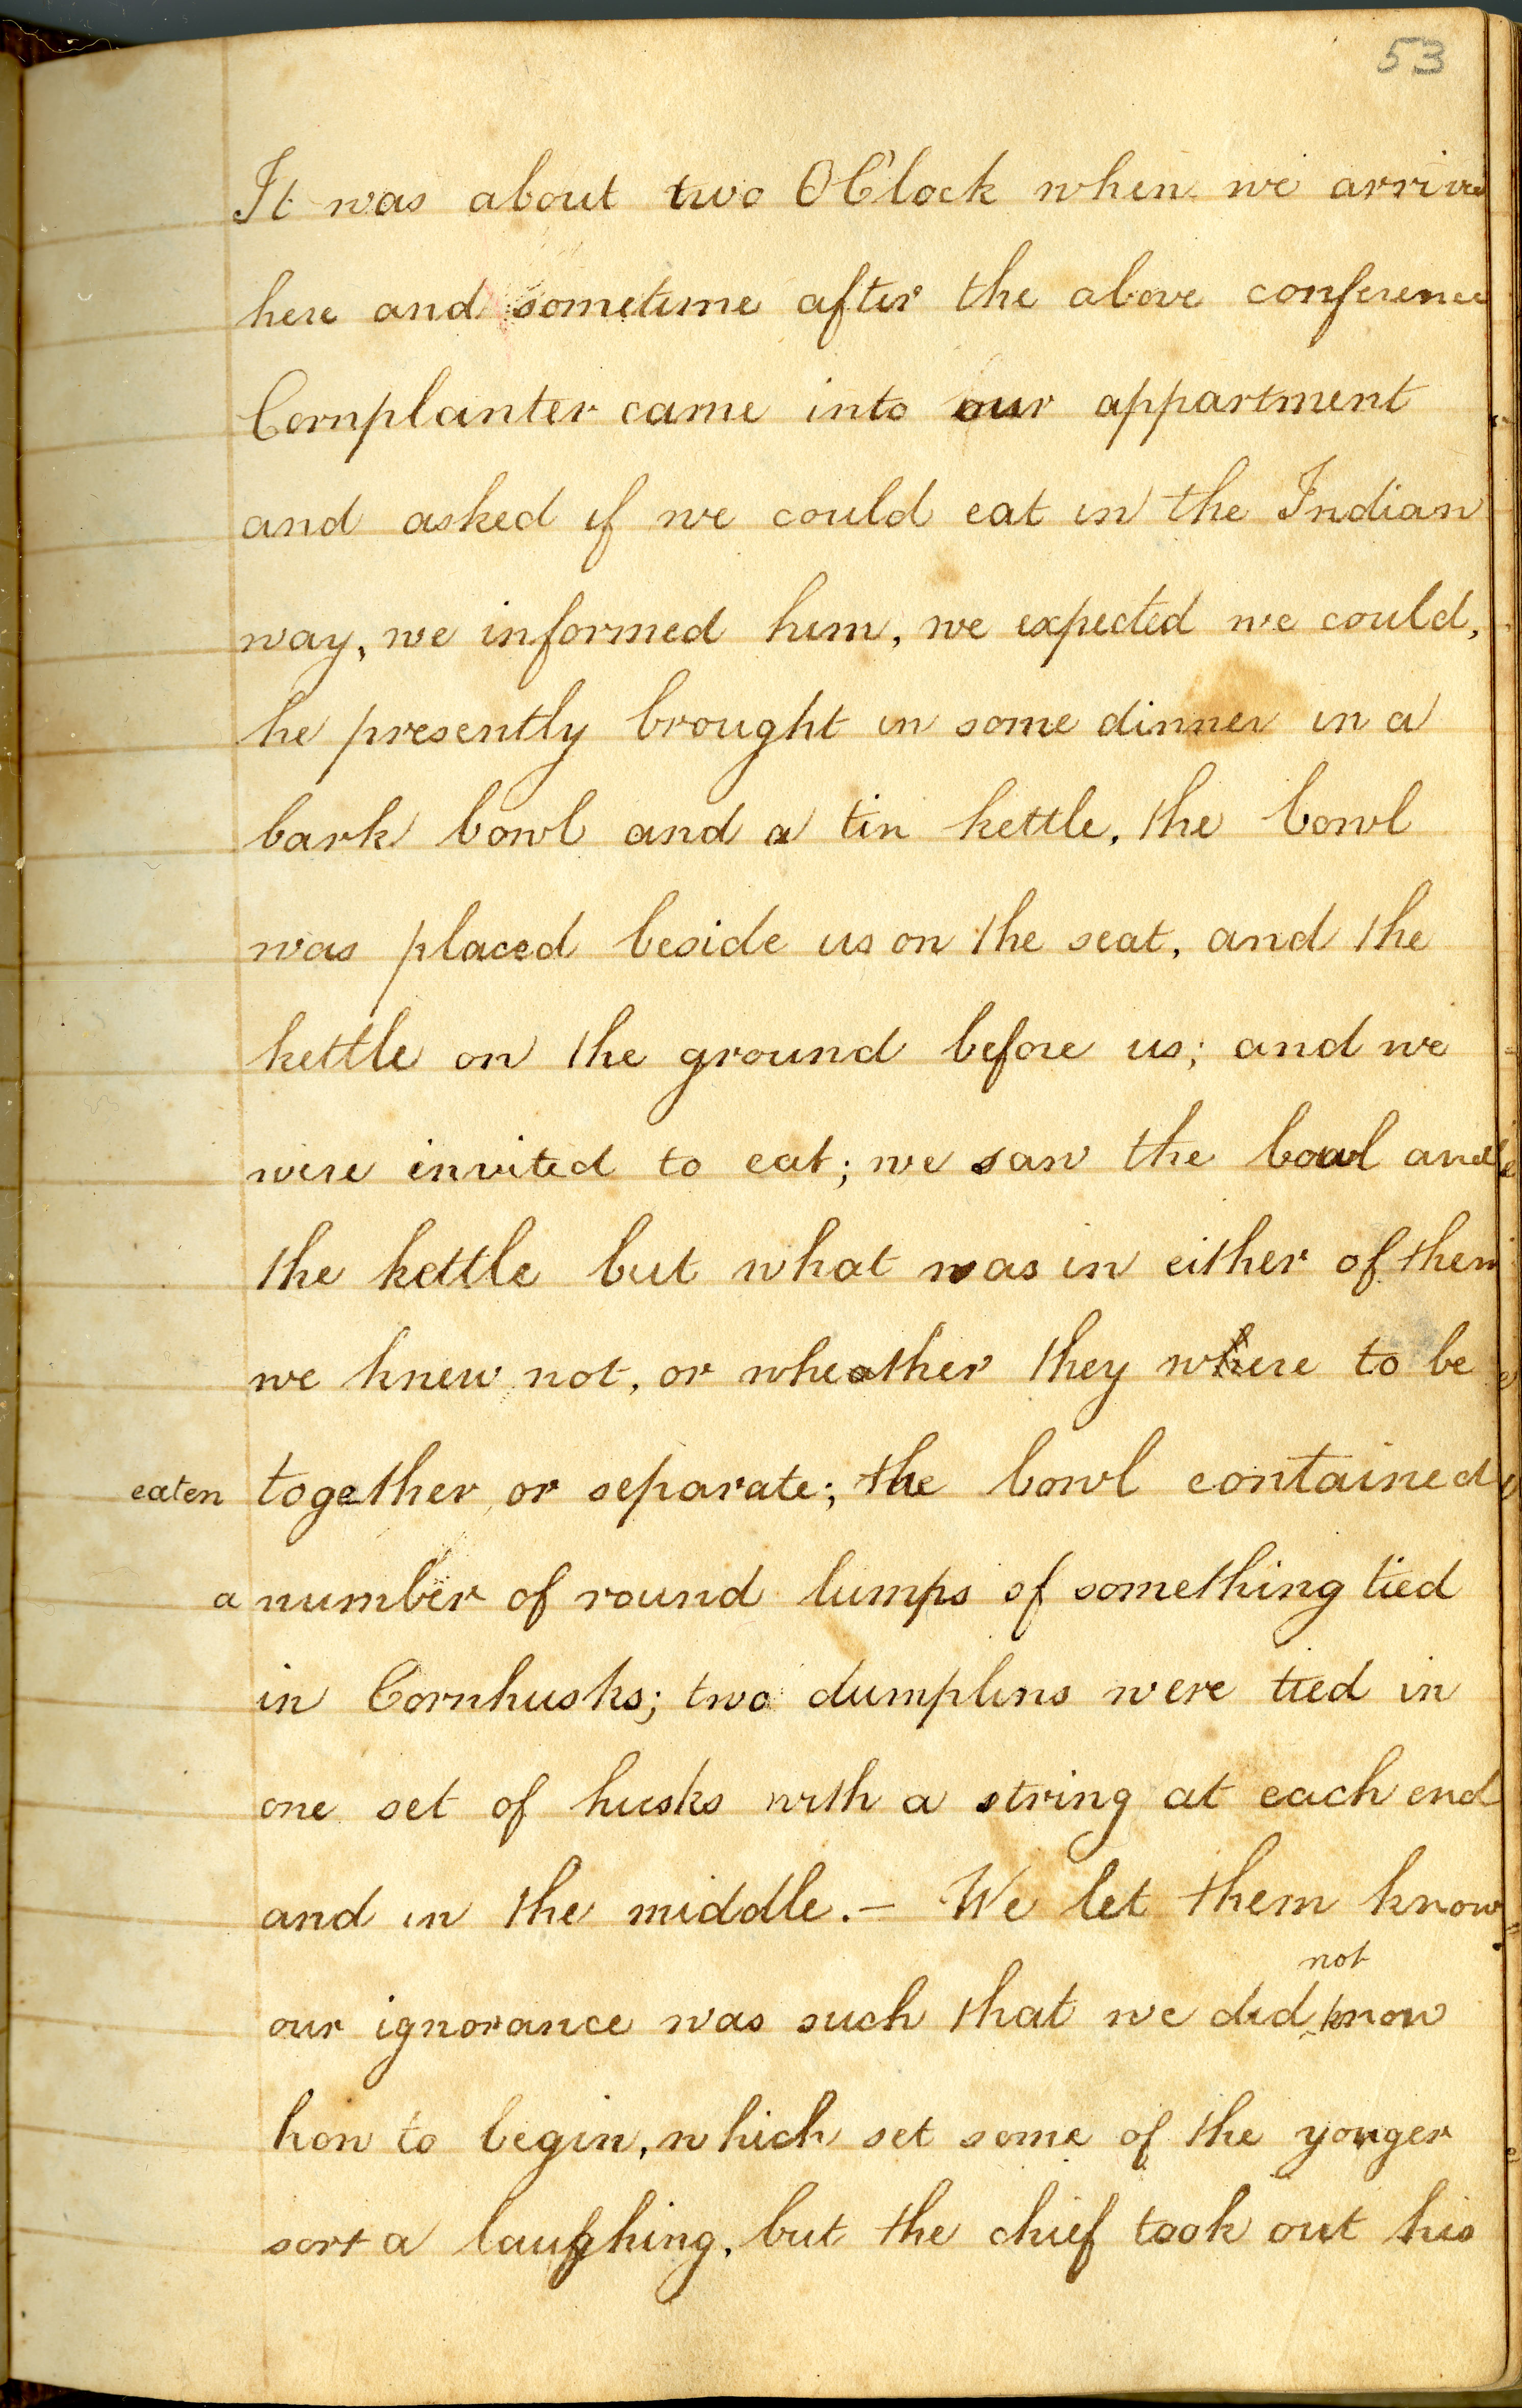 53
It was about two OClock when we arrived
here and sometime after the above conference
Cornplanter came into our appartment
and asked if we could eat in the Indian
way, we informed him, we expected we could,
he presently brought in some dinner in a
bark bowl and a tin kettle, the bowl
was placed beside us on the seat, and the
kettle on the ground before us; and we
were invited to eat; we saw the bowl and
the kettle but what was in either of them
we knew not, or wheather they where to be
eaten together, or separate; the bowl contained
a number of round lumps of something tied
in Cornhusks; two dumplins were tied in
one set of husks with a string at each end
and in the middle. – We let them know
not
our ignorance was such that we did know
how to begin, which set some of the yonger
sort a laughing, but the chief took out his